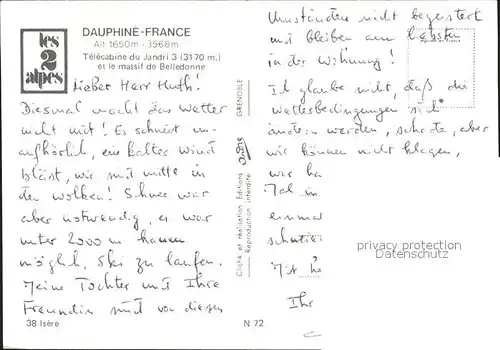 les
2
alpes
DAUPHINÉ-FRANCE
Alt 1650m - 3568m
Télécabine du Jandri 3 (3170 m.)
et le massif de Belledonne
Lieber Herr Huth!
Diesmal macht das Wetter
nicht mit! Es schneit un-
aufhörlich, ein kalter Wind
bläst, wir sind mitten in
den Wolken! Schnee war
aber notwendig, es war
unter 2000 m kaum
möglich, Ski zu laufen.
Meine Tochter und Ihre
Freundin sind von diesen
38 Isère
Cliché et réalisation Editions
Reproduction interdite
GRENOBLE
N 72
Umständen nicht begeistert
und bleiben am liebsten
in der Wohnung!
Ich glaube nicht, daß die
Wetterbedingungen sich
ändern werden, schade, aber
wir können nicht klagen,
wir ha
Ich in
einma
Mit he
Ihr
privacy protection
Datenschutz